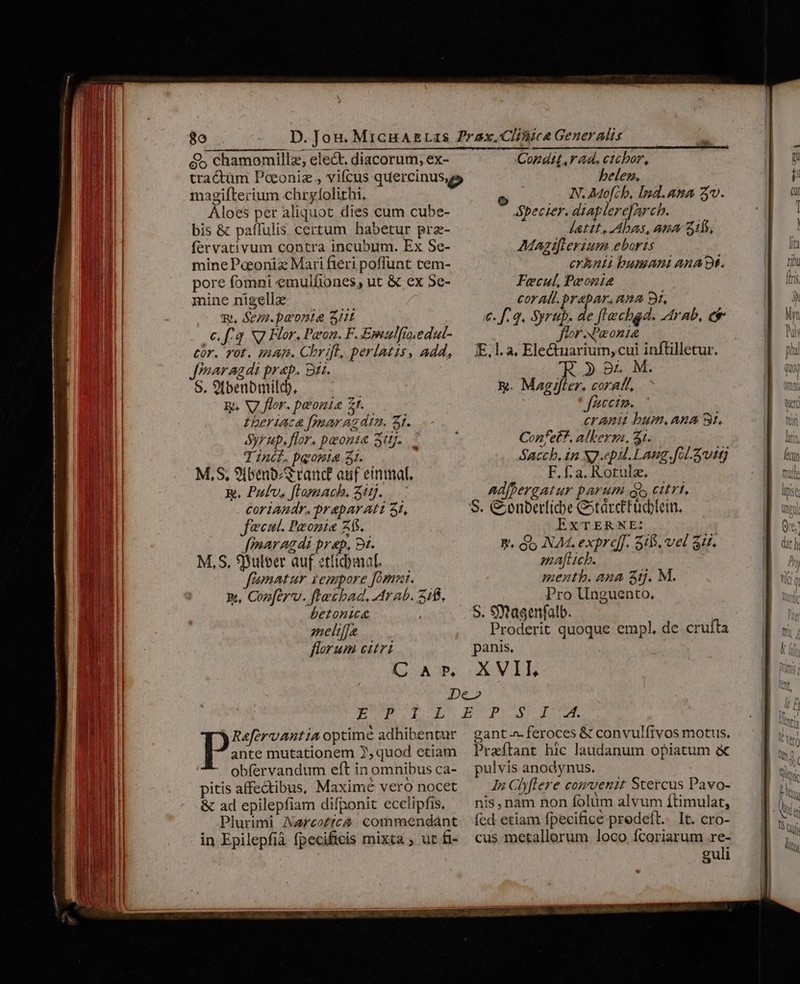 80 D. Joh. Michaelis Prax. Clinicæ Generalis
chamomillæ, elect. diacorum, ex-
tractum Pœoniæ, viſcus quercinus,
magiſterium chryſolithi.
Aloes per aliquot dies cum cube-
bis & paſſulis certum habetur præ-
ſervativum contra incubum. Ex Se-
mine Pœoniæ Mari fieri poſſunt tem-
pore ſomni emulſiones, ut & ex Se-
mine nigellæ
℞. Sem. pœoniæ ʒiii
c. ſ. q. ▽ Flor. Pæon. F. Emulſio, edul-
cor. rot. man. Chriſt. perlatis, add,
ſmaragdi præp. ℈ii.
S. Abendmilch.
℞. ▽ flor. pæoniæ ℥i.
theriacæ ſmaragdin. ʒi.
Syrup. flor. pæoniæ ʒiij.
Tinct. pæoniæ ʒi.
M. S. Abend-Tranck auf einmal.
℞. Pulv. ſtomach. ʒiij.
coriandr. præparati ʒi,
fæcul. Pæoniæ ʒß.
ſmaragdi præp. ℈i.
M. S. Pulver auf etlichmal.
ſumatur tempore ſomni.
℞. Conſerv. ſtœchad. Arab. ʒiß,
betonicæ
meliſſæ
florum citri
Condit. rad. cichor.
helen.
N. Moſch. Ind. ana ʒv.
Specier. diaplereſarch.
lætit. Abas, ana ʒiß.
Magiſterium eboris
cranii humani ana ℈i.
Fæcul. Pæoniæ
corall. præpar. ana ℈i,
c. ſ. q. Syrup. de ſtœchad. Arab. &
flor. Pæoniæ
F. l. a. Electuarium, cui inſtilletur.
℈i. M.
℞. Magiſter. corall.
ſuccin.
cranii hum. ana ℈i.
Confect. alkerm. ʒi.
Sacch. in ▽. epil. Lang. ſol. ℥viij
F. ſ. a. Rotulæ.
adſpergatur parum citri.
S. Sonderliche Stärcktüchlein.
Externe:
℞. NM. expreſſ. ʒiß, vel ʒii.
maſtich.
menth. ana ʒij. M.
Pro Unguento.
S. Magenſalb.
Proderit quoque empl. de cruſta
panis.
Cap. XVII.
De
EPILEPSIA.
PRæſervantia optimè adhibentur
ante mutationem ☽, quod etiam
obſervandum eſt in omnibus ca-
pitis affectibus. Maximè verò nocet
& ad epilepſiam diſponit ecclipſis.
Plurimi Narcotica commendant
in Epilepſiâ ſpecificis mixta, ut fi-
gant feroces & convulſivos motus.
Præſtant hîc laudanum opiatum &
pulvis anodynus.
In Clyſtere convenit Stercus Pavo-
nis, nam non ſolùm alvum ſtimulat,
ſed etiam ſpecificè prodeſt. It. cro-
cus metallorum loco ſcoriarum re-
guli